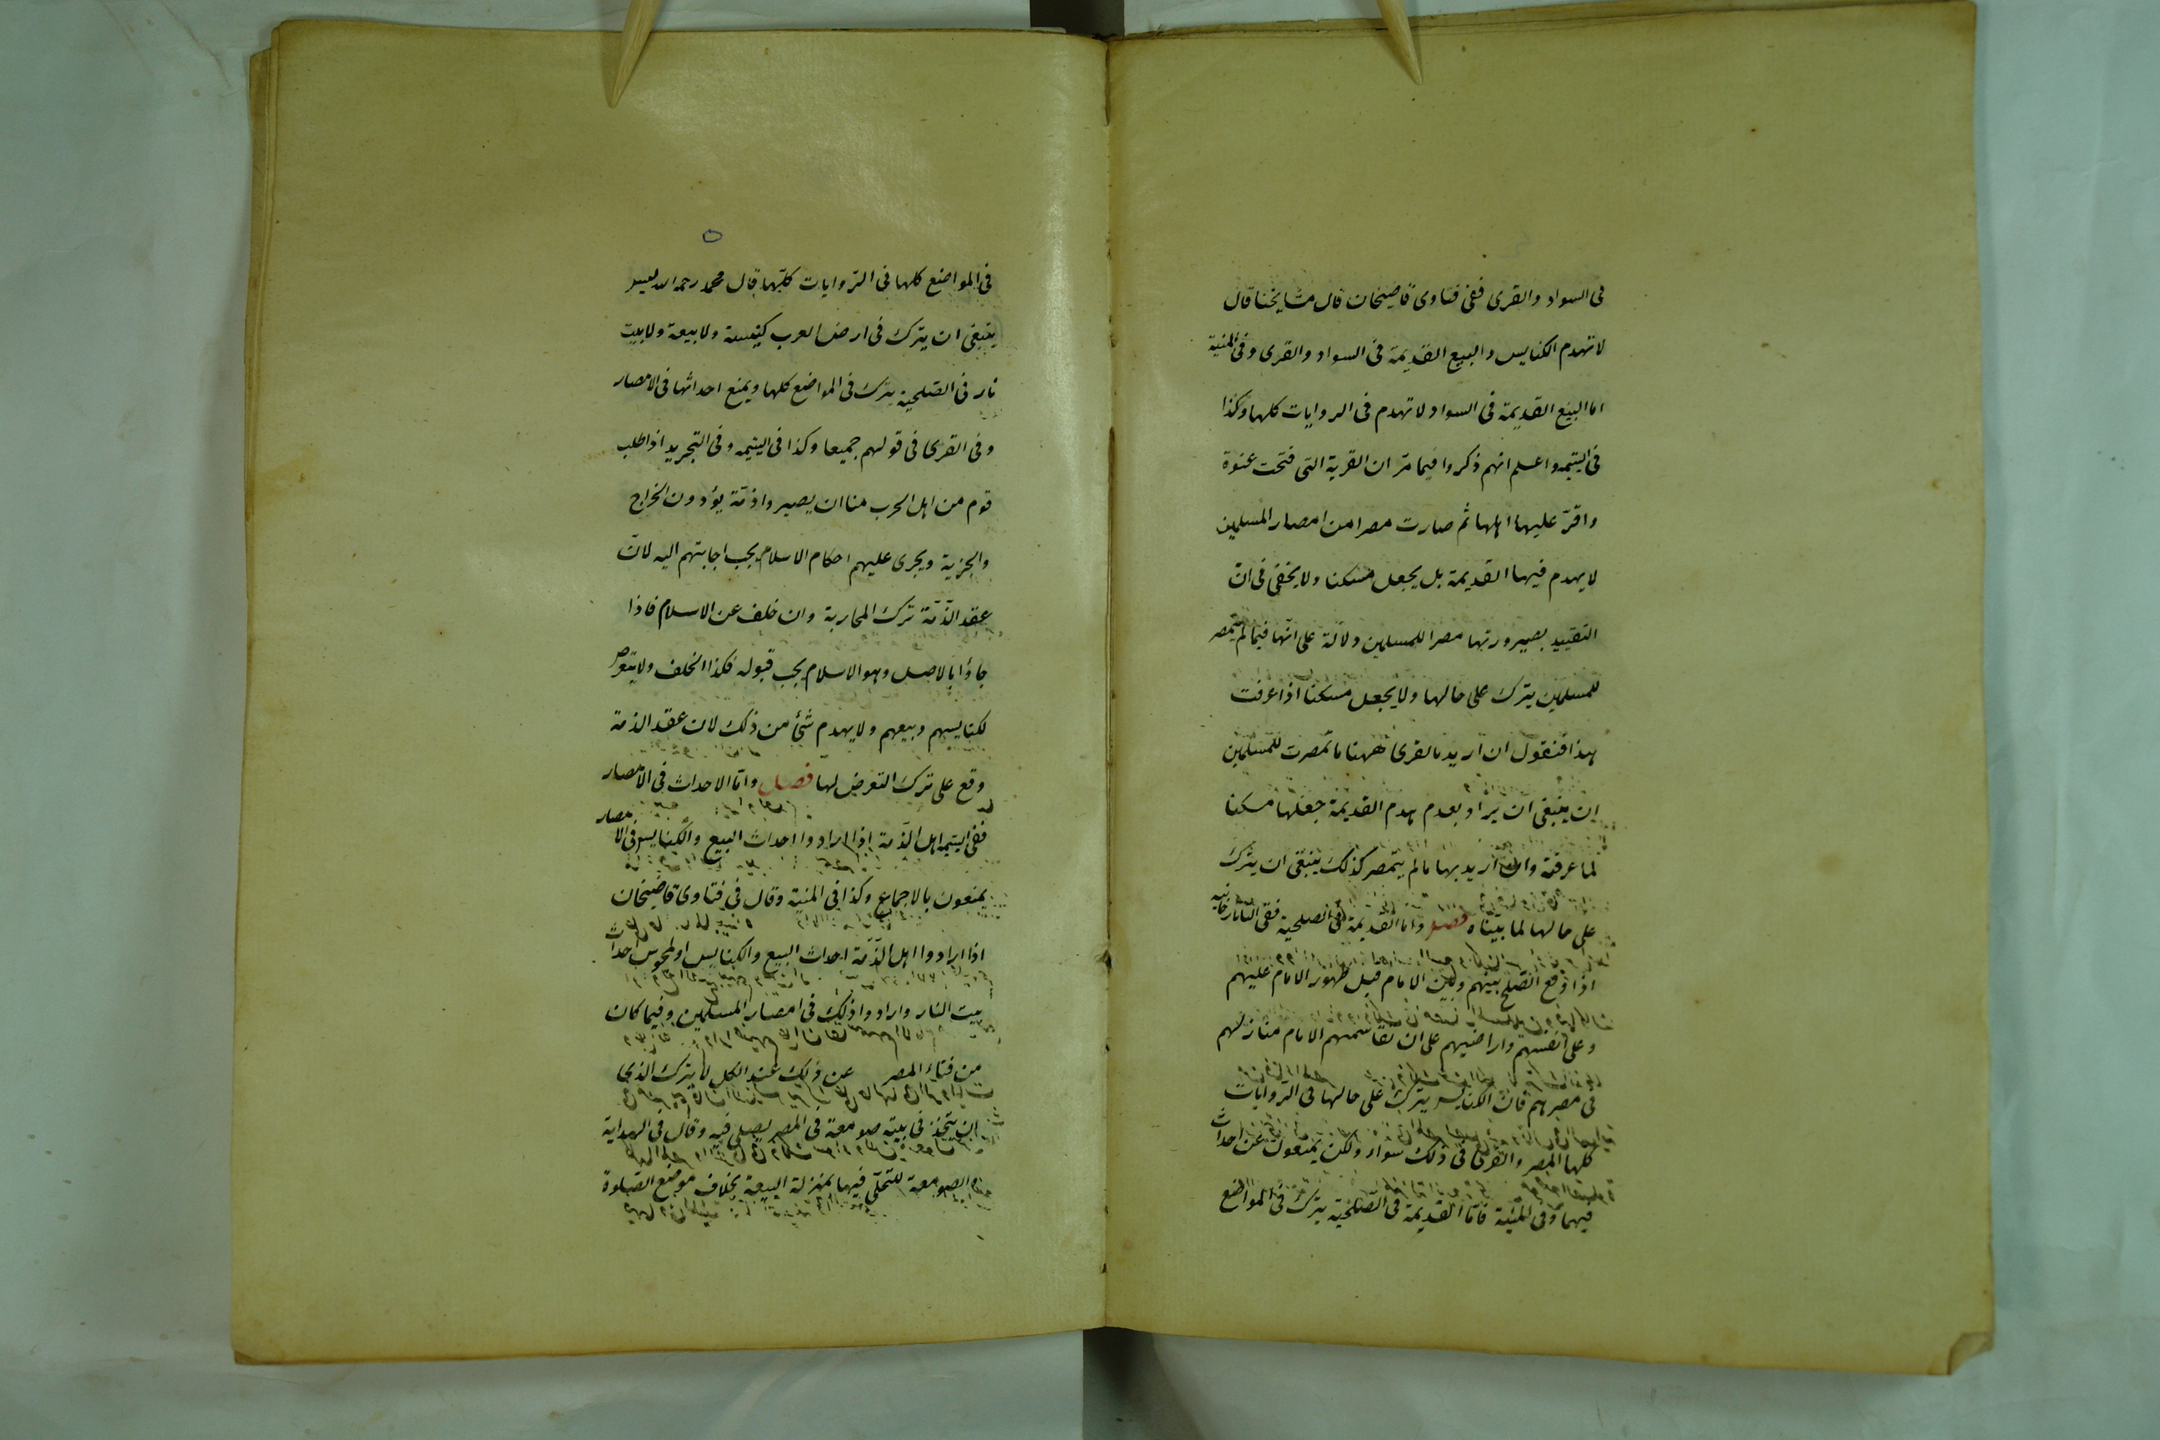 فى السواد والقرى ففى فتاوى قاضيخان قال مشايخنا قال
لا تهدم الكنايس والبيع القديمة فى السواد والقرى وفى المنية
اما البيع القديمة فى السواد لا تهدم فى الروايات كلها وكذا
فى اليتيمه واعلم انهم ذكروا فيما مرّ ان القرية التى فتحت عنوة
واقرّ عليها اهلها ثم صارت مصرا من امصار المسلمين
لا يهدم فيها القديمة بل يجعل مسكنا ولا يخفى فى انّ
التقييد بصيرورتها مصرا للمسلمين دلالة على انّها فيما لم يتمصر
للمسلمين يترك على حالها ولا يجعل مسكنا اذا عرفت
هذا فنقول ان اريد بالقرى ههنا ما تمصرت للمسلمين
ان ينبغى ان يراد بعدم هدم القديمة جعلها مسكنا
لما عرفته وان اريد بها ما لم يتمصر كذلك ينبغى ان يترك
على حالها لما بيّناه فصل واما القديمة فى الصلحية ففى التاتارخانيه
اذا وقع الصلح بينهم وبين الامام قبل ظهور الامام عليهم
وعلى انفسهم واراضيهم على ان تقاسمهم الامام منازلهم
فى مصرهم فان الكنايس يترك على حالها فى الرّوايات
كلها المصر والقرى فى ذلك سواء ولكن يمنعون عن احداث
فيهما وفى المنية فامّا القديمة فى الصّلحية يترك فى المواضع
٥
فى المواضع كلها فى الرّوايات كلّها قال محمد رحمه الله ليس
ينبغى ان يترك فى ارض العرب كنيسة ولا بيعة ولا بيت
نار فى الصّلحية يترك فى المواضع كلها ويمنع احداثها فى الامصار
وفى القرى فى قولهم جميعا وكذا فى اليتيمه وفى التجريد اذا طلب
قوم من اهل الحرب منا ان يصيروا ذمّة يؤدون الخراج
والجزية ويجرى عليهم احكام الاسلام يجب اجابتهم اليه لانّ
عقد الذّمّة ترك المحاربة وان خلف عن الاسلام فاذا
جاؤا بالاصل وهو الاسلام يجب قبوله فكذا الخلف ولا يتعرض
لكنايسهم وبيعهم ولا يهدم شئ من ذلك لان عقد الذمة
وقع على ترك التعرض لها فصل وامّا الاحداث فى الامصار
ففى اليتيمه اهل الذّمة اذا ارادوا احداث البيع والكنايس فى الامصار
يمنعون بالاجماع وكذا فى المنية وقال فى فتاوى قاضيخان
اذا ارادوا اهل الذّمّة احداث البيع والكنايس او المجوس احداث
بيت النار وارادوا ذلك فى امصار المسلمين وفيما كان
من فناء المصر عن ذلك عند الكل لا يترك الذى
ان يتخذ فى بيته صومعة فى المصر يصلى فيه وقال فى الهداية
والصومعة للتخلّى فيها بمنزلة البيعة بخلاف موضع الصلوة